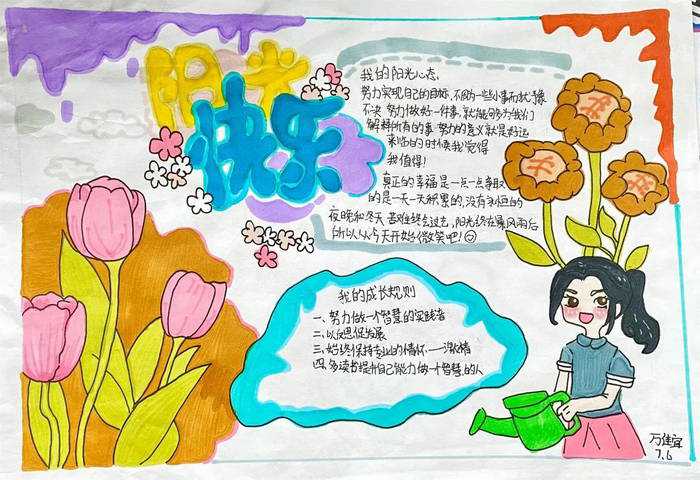 阳光
快乐
我的阳光心态
努力实现自己的目标,不因为一些小事而犹豫
不决 努力做好一件事,就能够为我们
解释所有的事 努力的意义就是好运
来临的时候我觉得
我值得!
真正的幸福是一点一点争取
的是一天一天积累的,没有永恒的
夜晚和冬天 苦难终会过去,阳光终在暴风雨后
所以从今天开始微笑吧!
我的成长规则
一、努力做一个智慧的实践者
二、以反思促发展
三、始终保持专业的情怀——激情
四、多读书提升自己能力做一个智慧的人
7.6